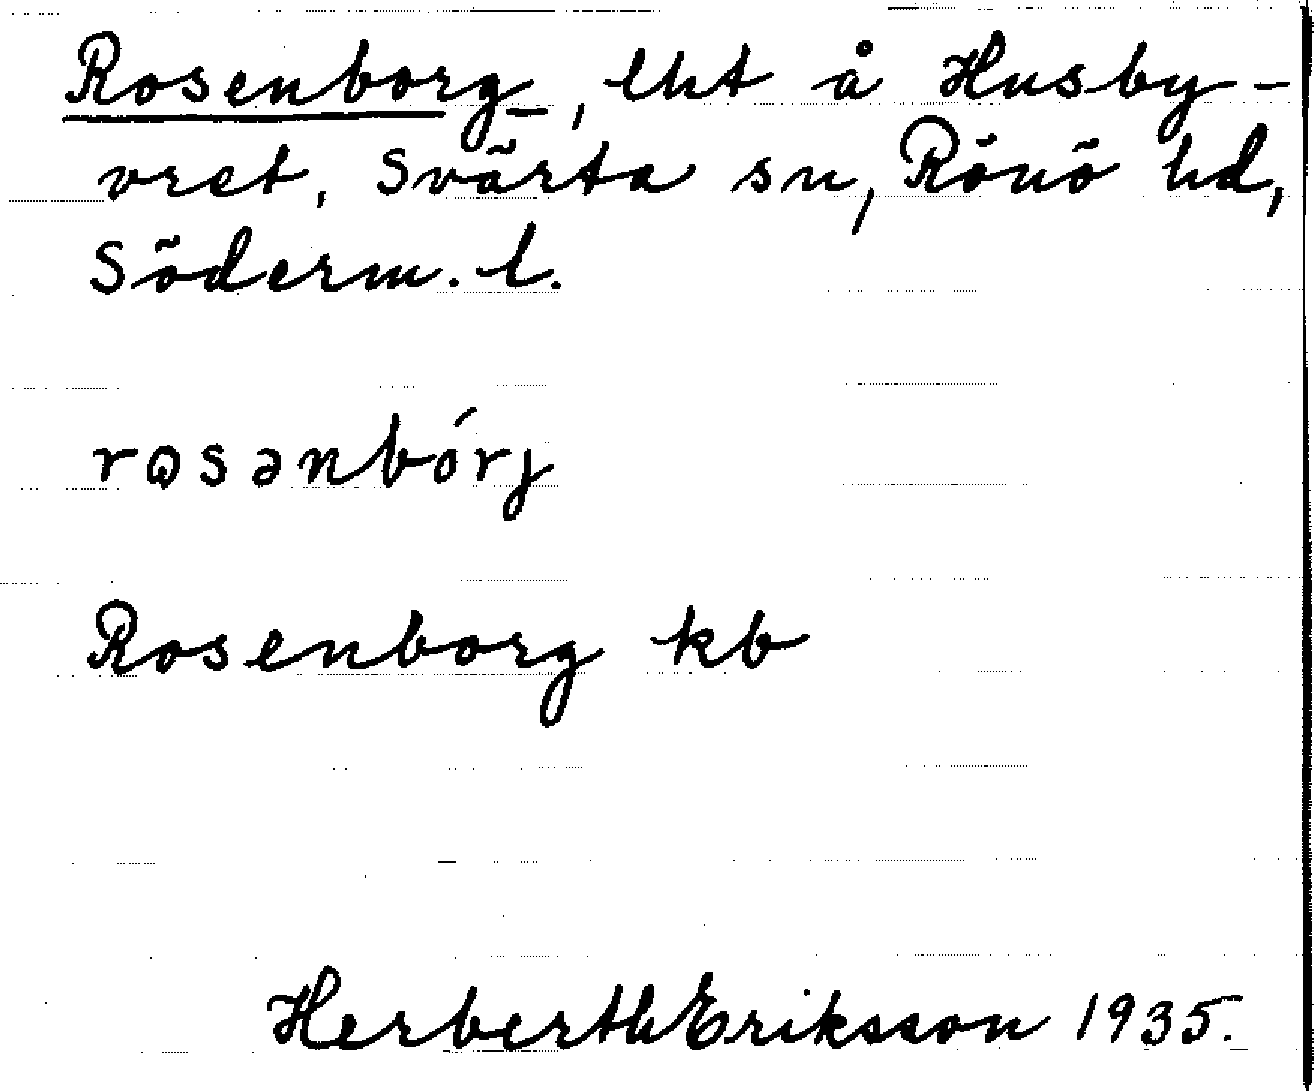 Rosenborg, lht å Husby-
vret, Svärta sn, Rönö hd,
Söderm. l.
rosənbórj
Rosenborg kb
Herberth Eriksson 1935.